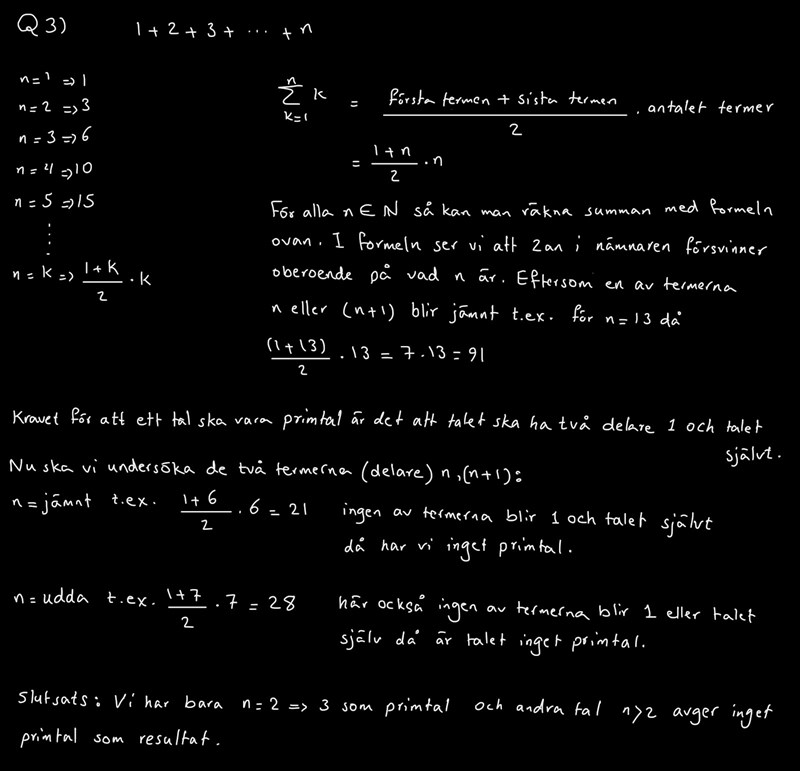 Q3) 1+2+3+ ... + n
n=1 => 1
n=2 => 3
n=3 => 6
n=4 => 10
n=5 => 15
⋮
n=k => (1+k)/2 · k
∑_{k=1}^{n} k = (första termen + sista termen)/2 · antalet termer
= (1+n)/2 · n
För alla n ∈ ℕ så kan man räkna summan med formeln
ovan. I formeln ser vi att 2an i nämnaren försvinner
oberoende på vad n är. Eftersom en av termerna
n eller (n+1) blir jämnt t.ex. för n=13 då
(1+13)/2 · 13 = 7 · 13 = 91
Kravet för att ett tal ska vara primtal är det att talet ska ha två delare 1 och talet
självt.
Nu ska vi undersöka de två termerna (delare) n,(n+1):
n=jämnt t.ex. (1+6)/2 · 6 = 21 ingen av termerna blir 1 och talet självt
då har vi inget primtal.
n=udda t.ex. (1+7)/2 · 7 = 28 här också ingen av termerna blir 1 eller talet
själv då är talet inget primtal.
Slutsats: Vi har bara n=2 => 3 som primtal och andra tal n>2 avger inget
primtal som resultat.